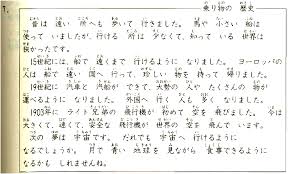 1. 乗り物の 歴史
昔は 遠い 所へも 歩いて 行きました。 馬や 小さい 船は
使って いましたが、行ける 所は 少なくて、知って いる 世界は
狭かったです。
15世紀には、船で 遠くまで 行けるように なりました。 ヨーロッパの
人は 船で 遠い 国へ 行って、珍しい 物を 持って 帰りました。
19世紀に 汽車と 汽船が できて、大勢の 人や たくさんの 物が
運べるように なりました。 外国へ 行く 人も 多く なりました。
1903年に ライト兄弟の 飛行機が 初めて 空を 飛びました。 今は
大きくて、速くて、安全な 飛行機が 世界の 空を 飛んで います。
次の 夢は 宇宙です。 だれでも 宇宙へ 行けるように
なるでしょうか。 月で 青い 地球を 見ながら 食事できるように
なるかも しれませんね。